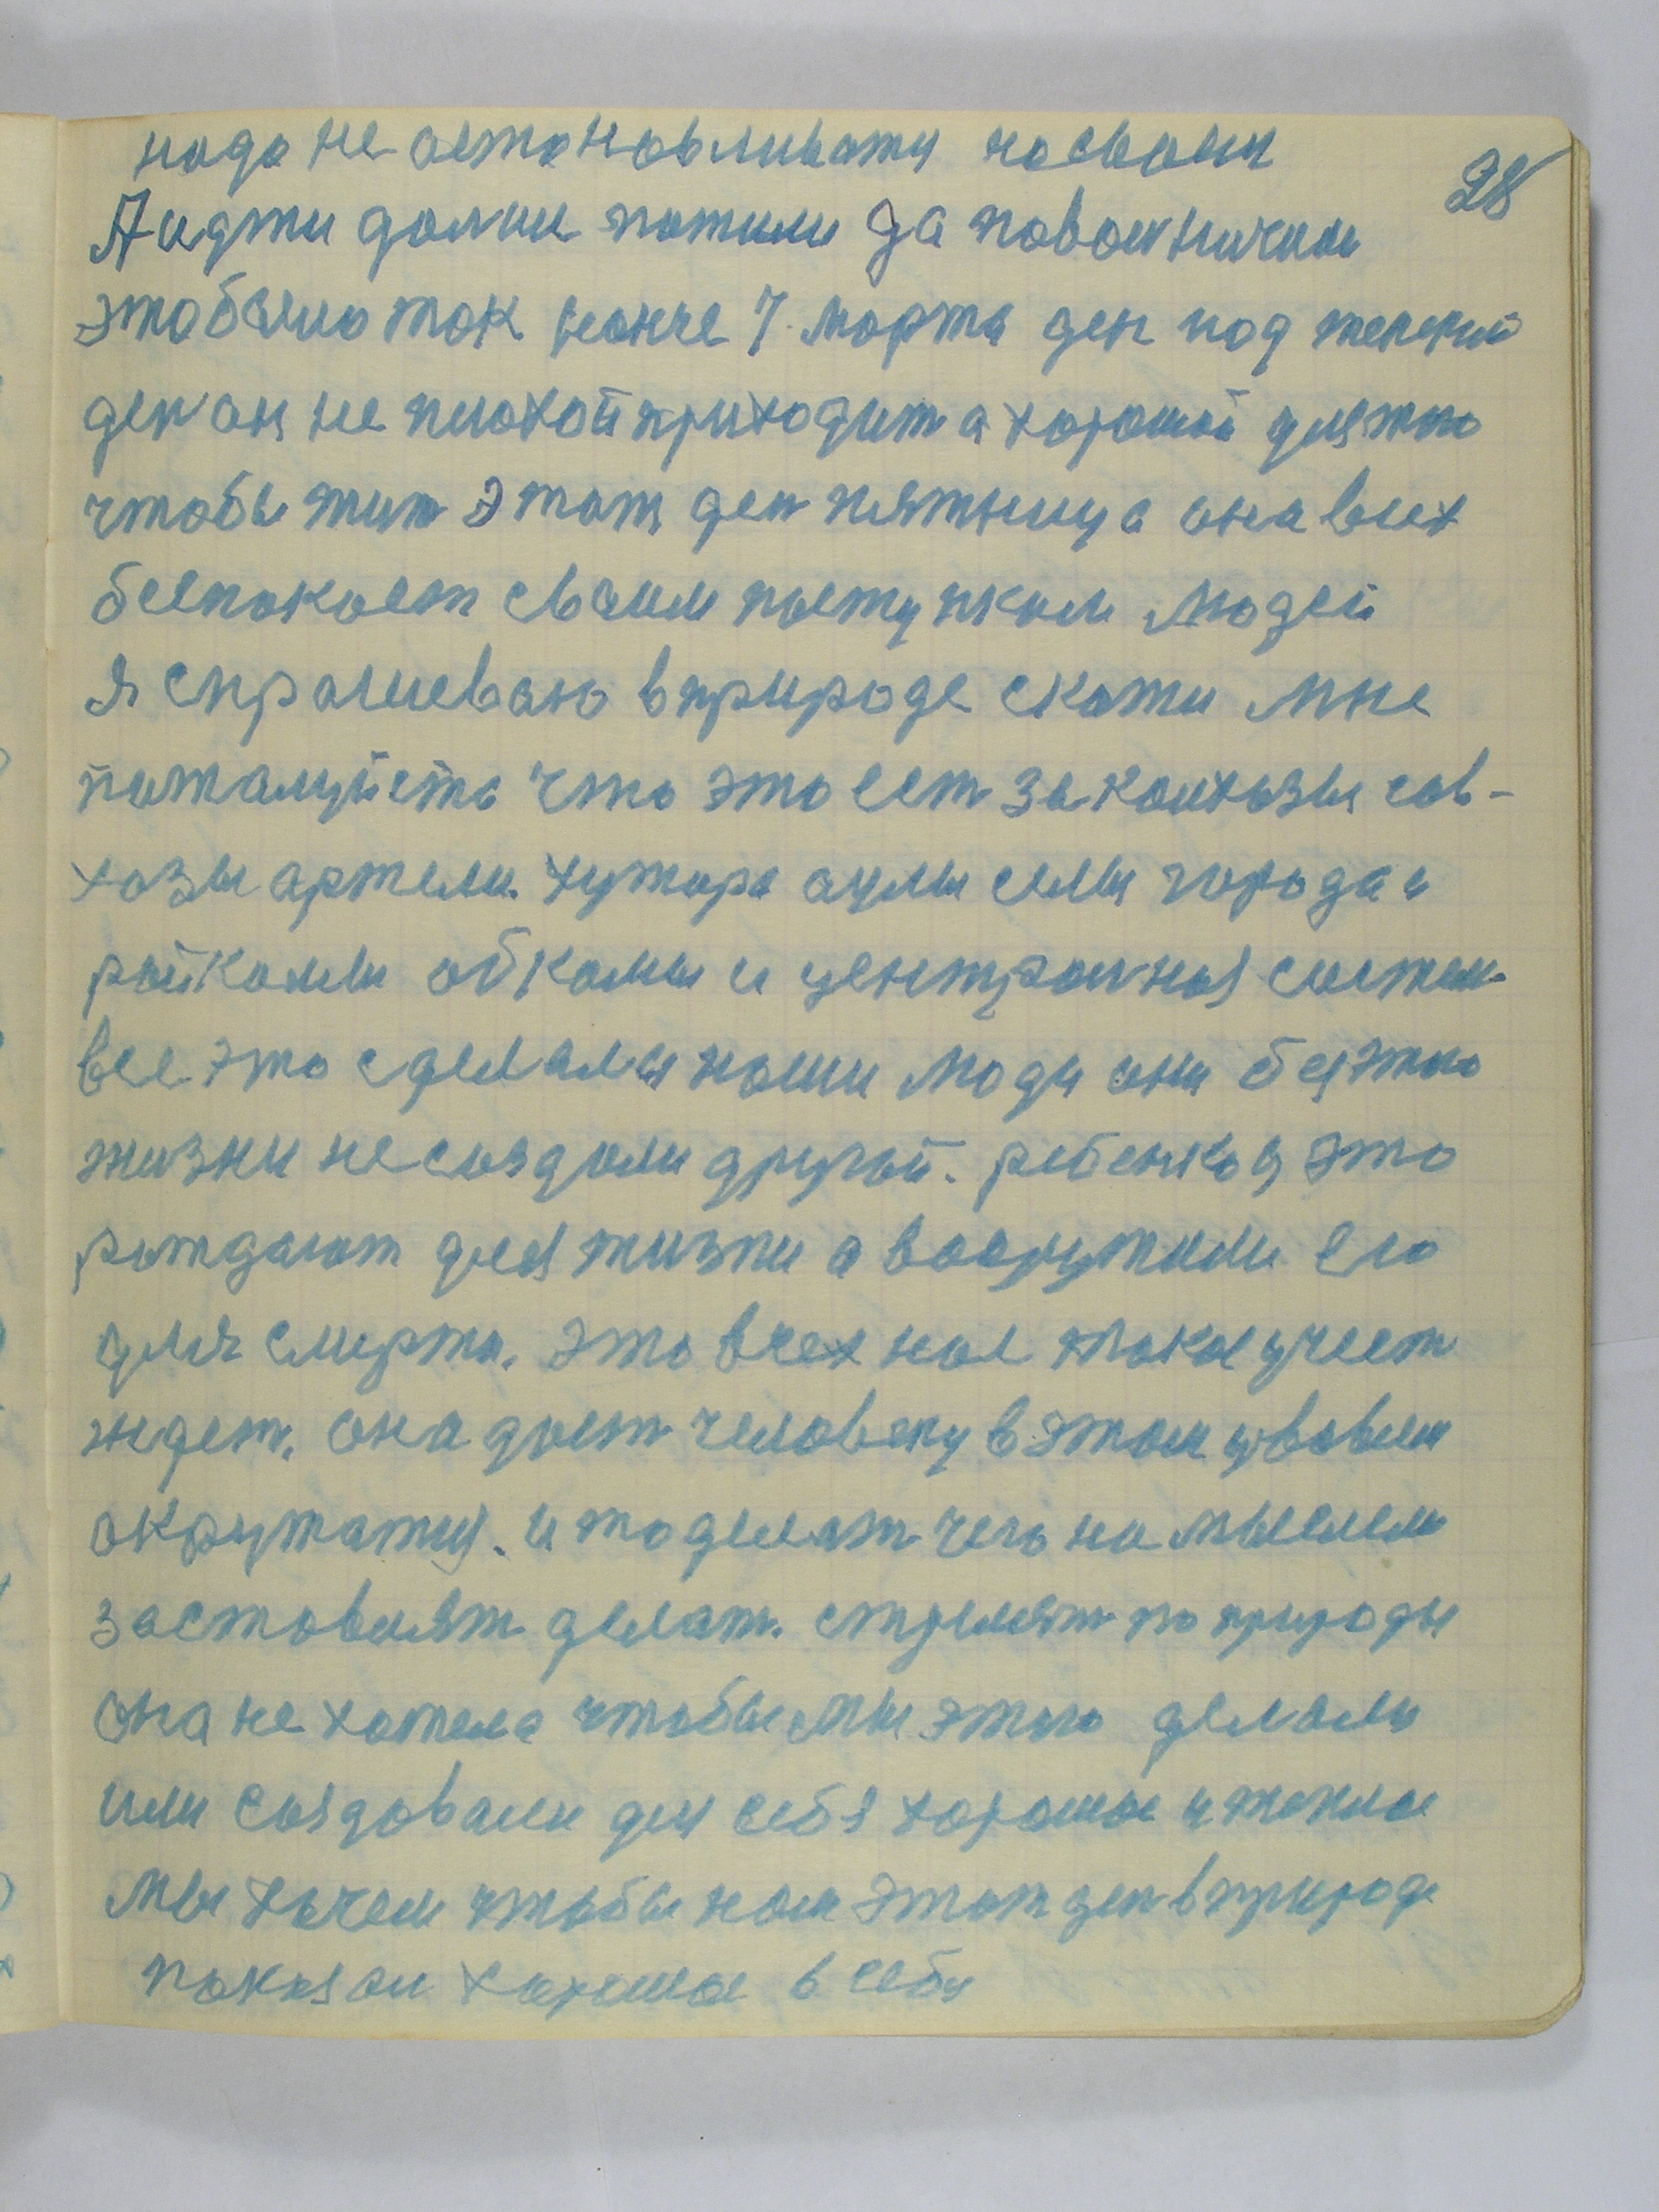 28
надо не астановливати часваси
Аиджи далии пожили да
этобыло так нонче 7 марта ден под женский
ден он не плохой приходит а хороший для того
чтобы жит этот ден пятница она всех
беспокоет своим поступкам людей
я спрашеваю вприроде скажи мне
пожалуйста что это ест за колхозы сов-
хозы артели. хутора аулы селы города и
райкомы обкомы и центральная систем
все это сделалы наши люди они без того
жизни не создали другой. ребенкоя это
рождают для жизни а вооружили его
для смерти. Это всех нас такое учест
ждет. она дает человеку вэтом
окружатия. и то делат чего не мыслем
заставлят делат. стрелят по природы
она не хотела чтобы мы этого делалы
или создовали для себя хорошое и теплое
мы хочем чтобы нам этот ден вприроде
показал хорошое в себы